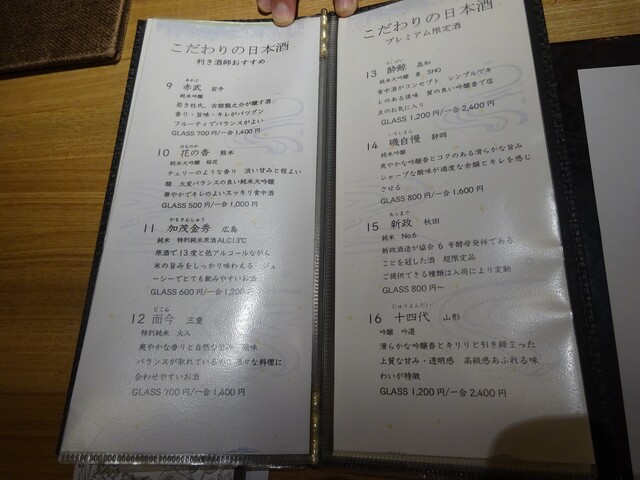 こだわりの日本酒
利き酒師おすすめ
あかぶ
9 赤武 岩手
純米吟醸
若き杜氏、古舘龍之介が醸す酒
香り・旨味・キレがバツグン
フルーティでバランスがよい
GLASS 700円/一合1,400円
はなのか
10 花の香 熊本
純米大吟醸 桜花
チェリーのような香り 淡い甘みと程よい
酸 大変バランスの良い純米大吟醸
華やかでキレのよいスッキリ食中酒
GLASS 500円/一合1,000円
かもきんしゅう
11 加茂金秀 広島
純米 特別純米原酒ALC13℃
原酒で13度と低アルコールながら
米の旨みをしっかり味わえる ジュ
ーシーでとても飲みやすいお酒
GLASS 600円/一合1,200円
じこん
12 而今 三重
特別純米 火入
爽やかな香りと自然な甘み・酸味
バランスが取れている
様々な料理に
合わせやすいお酒
GLASS 700円/一合1,400円
こだわりの日本酒
プレミアム限定酒
すいげい
13 酔鯨 高知
純米大吟醸 象 SHO
食中酒がコンセプト シンプルでキ
レのある後味 質の良い吟醸香で店
主のお気に入り
GLASS 1,200円/一合2,400円
いそじまん
14 磯自慢 静岡
純米吟醸
爽やかな吟醸香とコクのある滑らかな旨み
シャープな酸味が適度な余韻とキレを感じ
させる
GLASS 800円/一合1,600円
あらまさ
15 新政 秋田
純米 No.6
新政酒造が協会6号酵母発祥である
ことを冠した酒 超限定品
ご提供できる種類は入荷により変動
GLASS 800円～
じゅうよんだい
16 十四代 山形
吟醸 吟選
滑らかな吟醸香とキリリと引き締まった
上質な甘み・透明感 高級感あふれる味
わいが特徴
GLASS 1,200円/一合2,400円